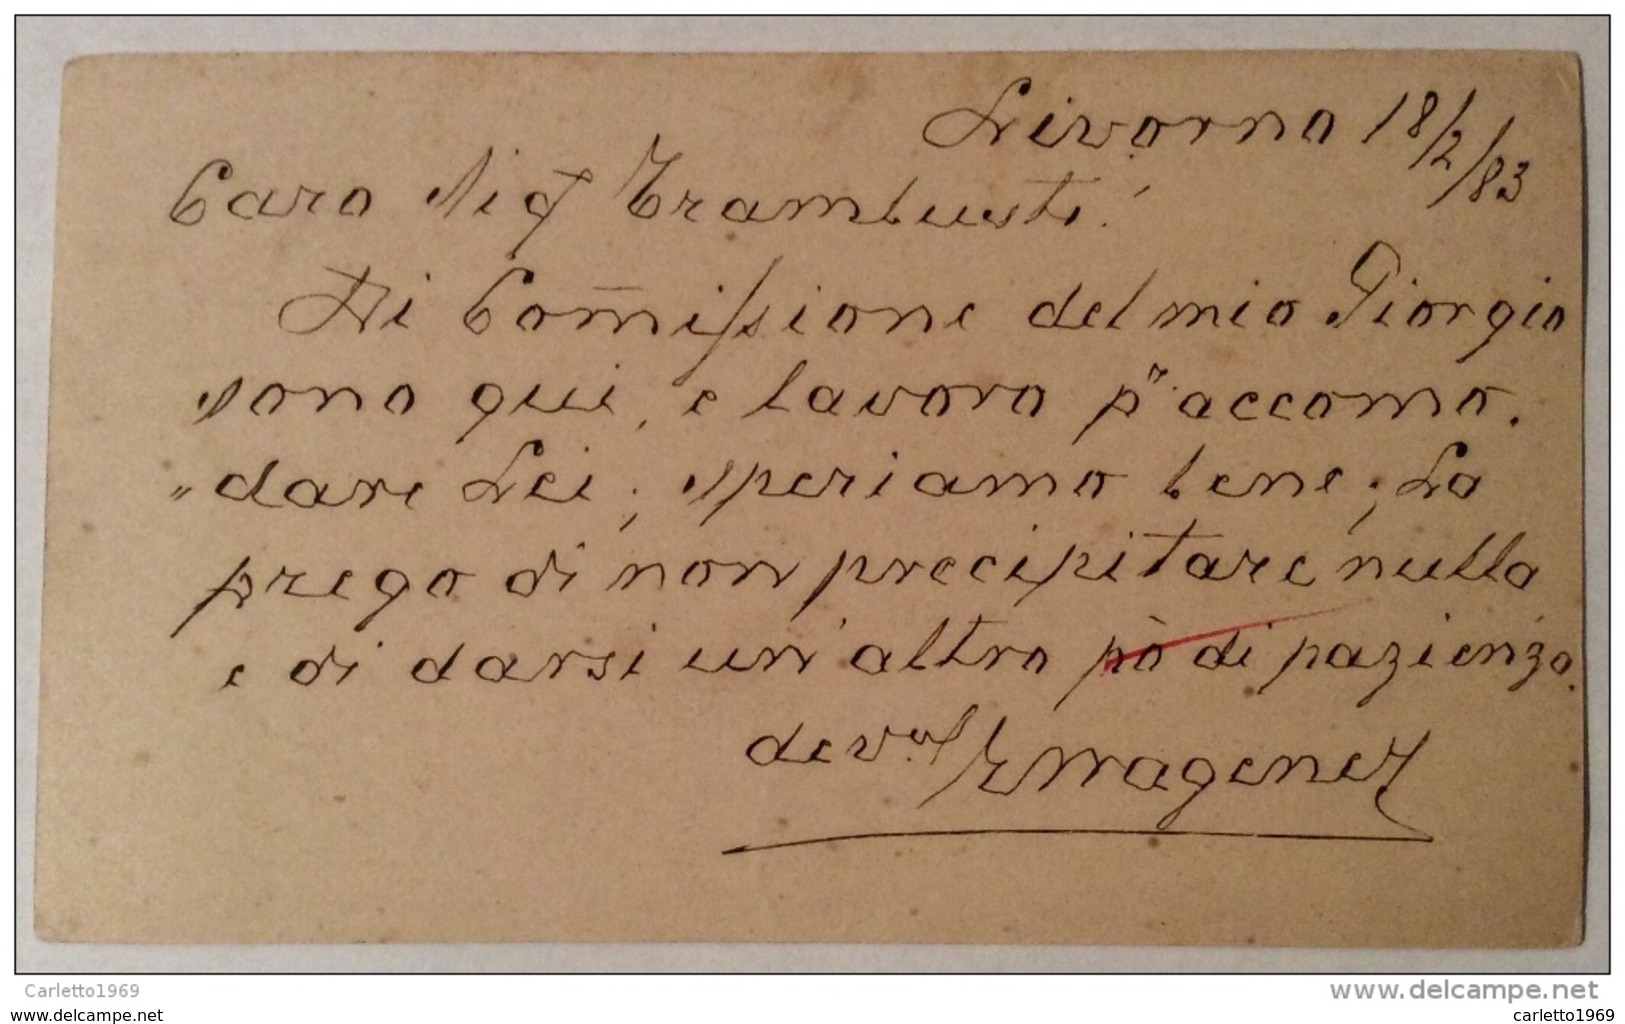 Livorno 18/2/83
Caro Sigr Trambusti!
Di Com̅issione del mio Giorgio
sono qui, e lavoro pr accomo.
"dare Lei; speriamo bene; La
prego di non precipitare nulla
e di darsi un'altro pò di pazienza.
devmo
Carletto1969
www.delcampe.net
www.delcampe.net
carletto1969